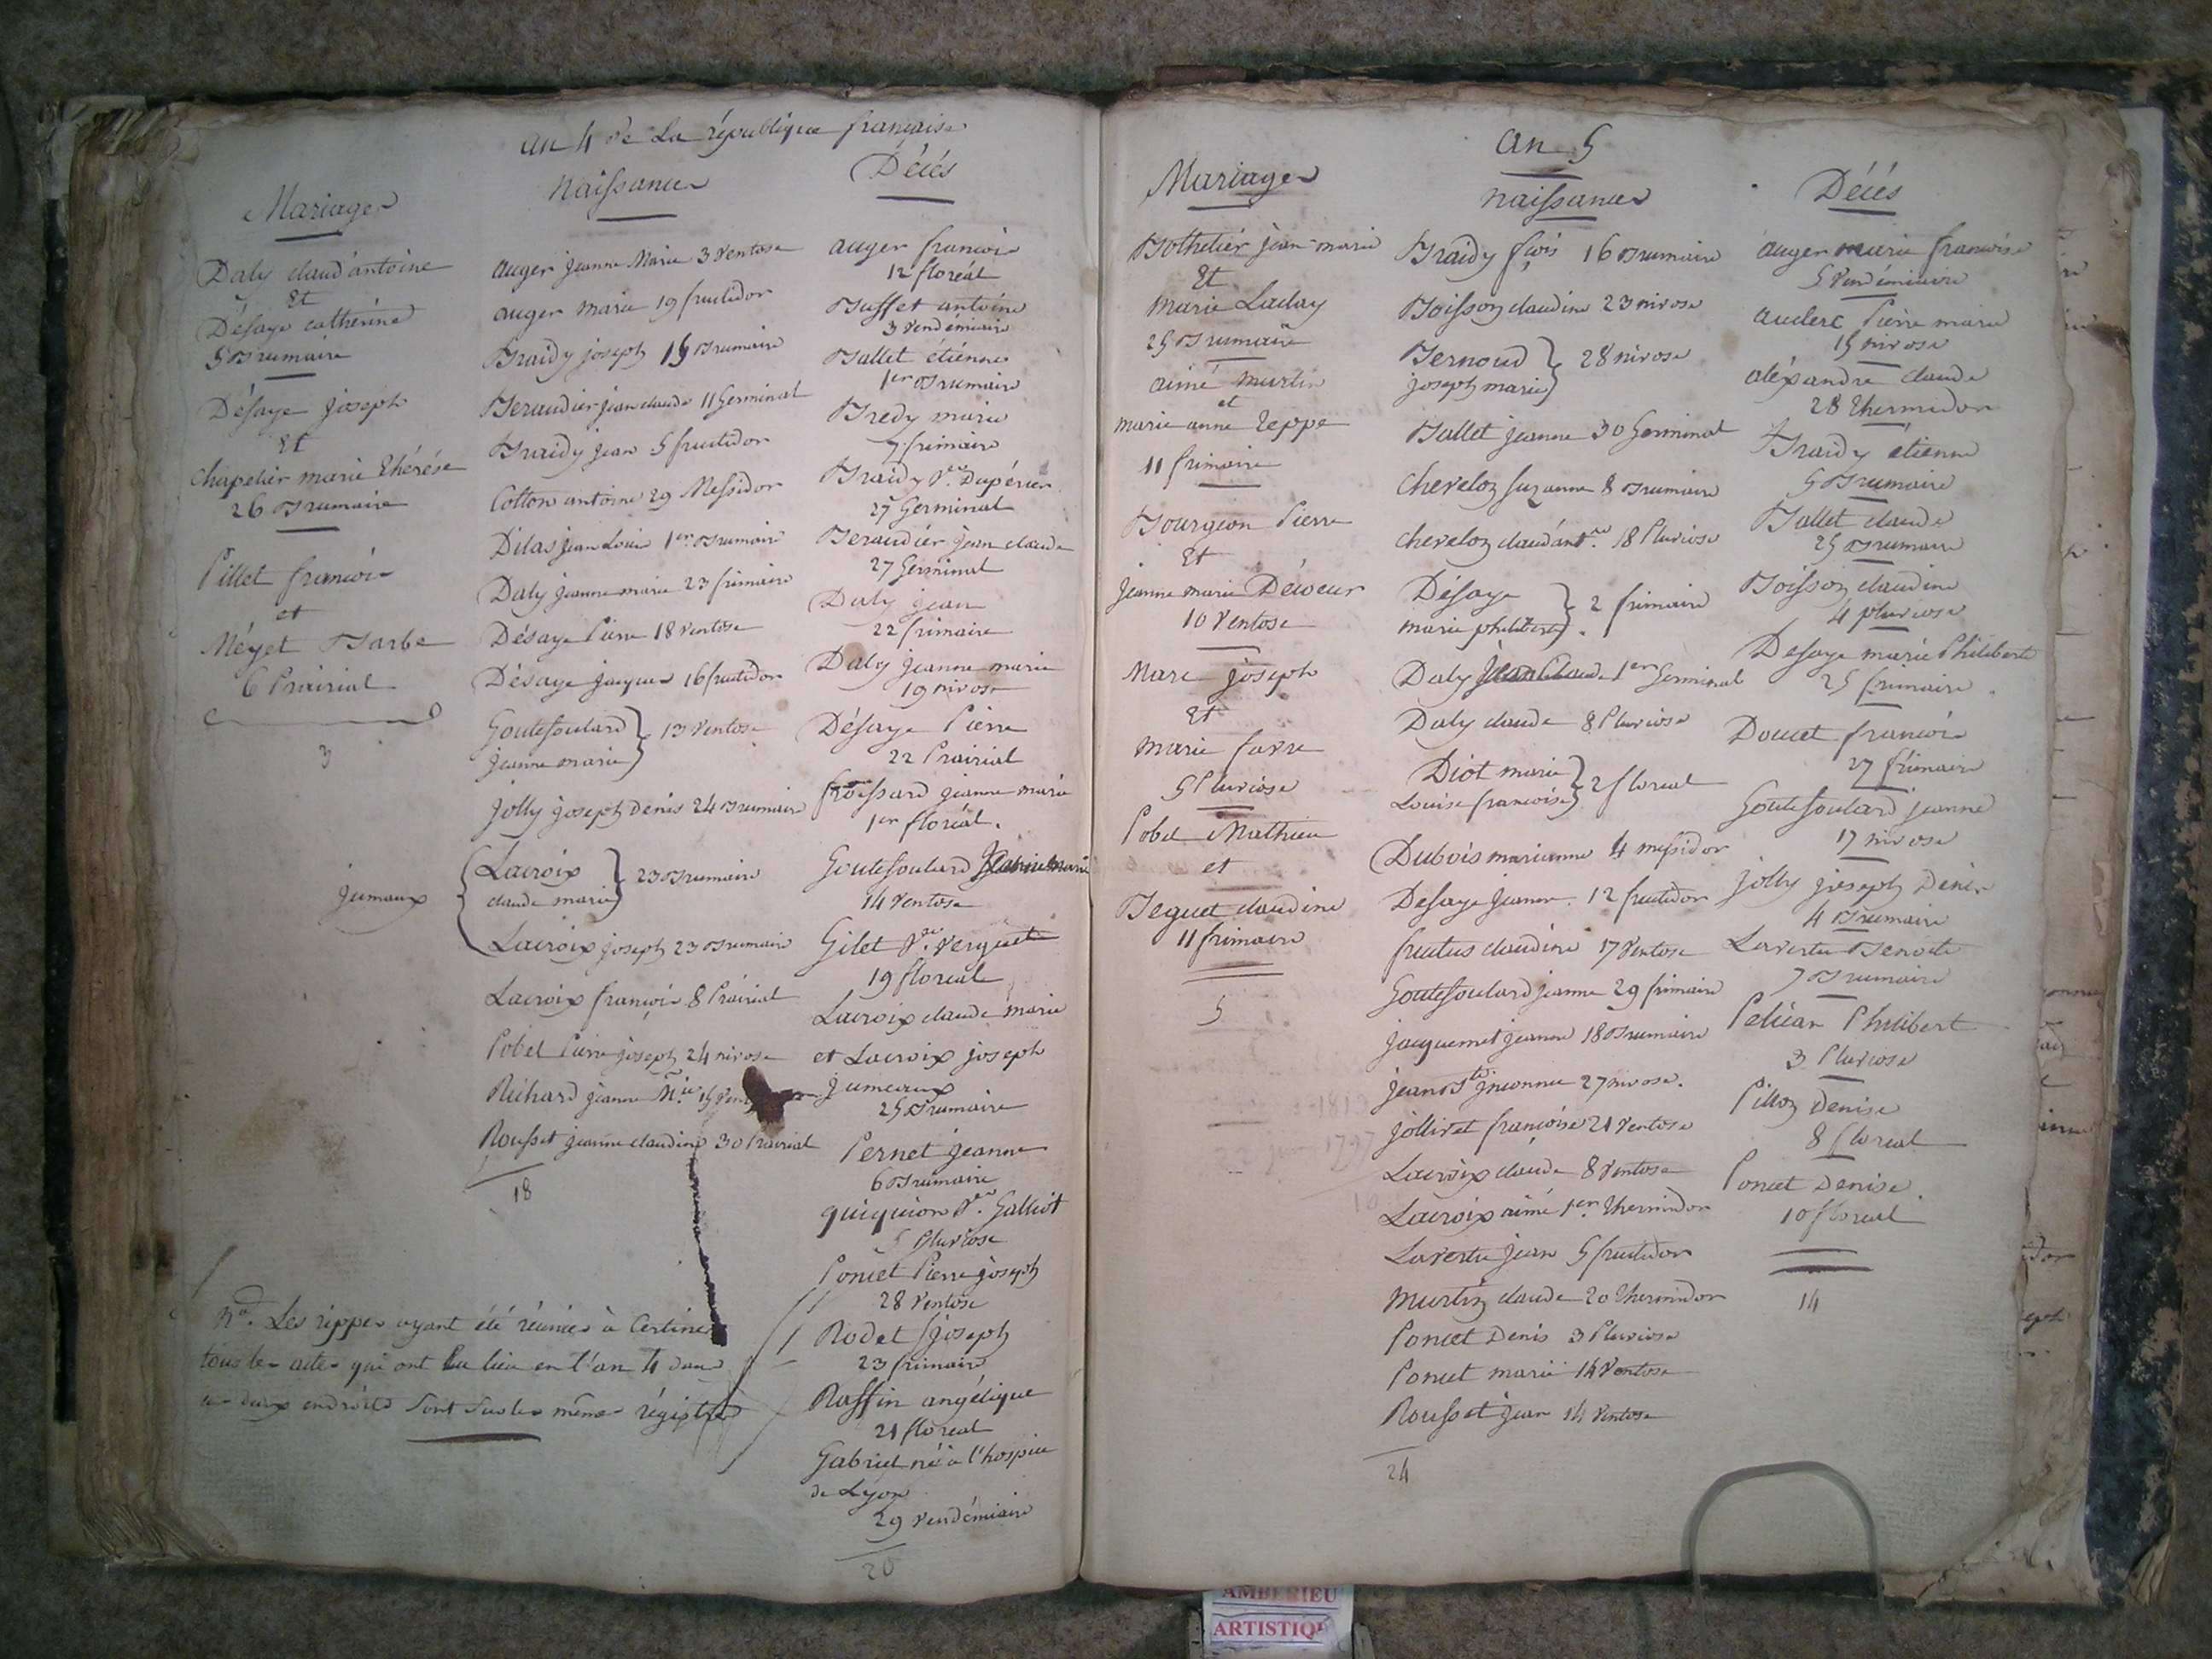 an 4 de La république française
Mariages
Daly claud'antoine
Et
Désaye cathérine
5 Brumaire
Désaye joseph
Et
chapelier marie thérése
26 Brumaire
Pillet francois
et
Néyet Barbe
6 Prairial
3
naissances
auger jeanne Marie 3 Ventose
auger marie 19 fructidor
Braidy joseph 15 Brumaire
Beraudier jean claude 11 Germinal
Braidy jean 5 fructidor
Cotton antoine 29 Messidor
Dilas jean Louis 1er Brumaire
Daly jeanne marie 23 frimaire
Désaye Pierre 18 Ventose
Désaye jacques 16 fructidor
Goutesoulard
jeanne marie } 13 Ventose
jolly joseph Denis 24 Brumaire
jumaux
Lacroix
claude marie } 23 Brumaire
Lacroix joseph 23 Brumaire
Lacroix françois 8 Prairial
Pobel Pierre joseph 24 nivose
Richard jeanne M.ie 15
Rousset jeanne claudine 30 Prairial
18
n.a Les rippes ayant été réunies à Certines
tous les actes qui ont Eu lieu en l'an 4 dans
ces deux endroits sont sur les mêmes régistres
Décés
auger francois
12 floréal
Buffet antoine
3 Vendémiaire
Ballet étienne
1er Brumaire
Bredy marie
7 frimaire
Braidy V.e Dupérier
27 Germinal
Beraudier jean claude
27 Germinal
Daly jean
22 frimaire
Daly jeanne marie
19 nivose
Désaye Pierre
22 Prairial
froissard jeanne marie
1er floréal.
Goutesoulard jeanne marie
14 Ventose
Gilet V.e
19 floreal
Lacroix claude marie
et Lacroix joseph
jumeaux
25 Brumaire
Pernet jeanne
6 Brumaire
V.e Galliot
5 Pluviose
Poncet Pierre joseph
28 Ventose
Rodet joseph
23 frimaire
Raffin angélique
21 floreal
Gabriel né à l'hospice
de Lyon
29 Vendémiaire
20
an 5
Mariages
Bothelier jean-marie
Et
Marie Laday
25 Brumaire
aimé murtin
et
marie anne reppe
11 frimaire
Bourgeon Pierre
Et
jeanne marie Décoeur
10 Ventose
Marc joseph
Et
Marie favre
5 Pluviose
Pobel Mathieu
et
Beguet claudine
11 frimaire
5
naissances
Braidy fçois 16 Brumaire
Boisson claudine 23 nivose
Bernoud
joseph marie } 28 nivose
Ballet jeanne 30 Germinal
chevelon suzanne 8 Brumaire
chevelon claud'ant.ne 18 Pluviose
Désaye
marie philiberte } 2 frimaire
Daly jean Claude 1er Germinal
Daly claude 8 Pluviose
Diot marie
Louise francoise } 2 floreal
Dubois marianne 4 messidor
Desaye jeanne 12 fructidor
fructus claudine 17 Ventose
Goutesoulard jeanne 29 frimaire
jacquemet jeanne 18 Brumaire
jean B.te inconnu 27 nivose.
jollivet françoise 21 Ventose
Lacroix claude 8 Ventose
Lacroix aimé 1er Thermidor
Lavertu jean 5 fructidor
Murtin claude 20 Thermidor
Poncet Denis 3 Pluviose
Poncet marie 14 Ventose
Rousset jean 14 Ventose
24
Décés
auger marie francoise
5 Vendémiaire
auclerc Pierre marie
15 nivose
aléxandre claude
28 Thermidor
Braidy étienne
5 Brumaire
Ballet claude
25 Brumaire
Boisson claudine
4 pluviose
Desaye marie Philiberte
25 frimaire
Doucet francois
27 frimaire
Goutesoulard jeanne
17 nivose
jolly joseph Denis
4 Brumaire
Lavertu Benoite
7 Brumaire
Pelican Philibert
3 Pluviose
Pillon Denise
8 floreal
Poncet Denise.
10 floreal
14
AMBERIEU
ARTISTIQ